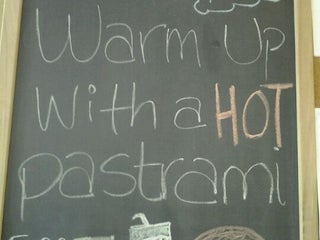 Warm Up
With a HOT
pastrami